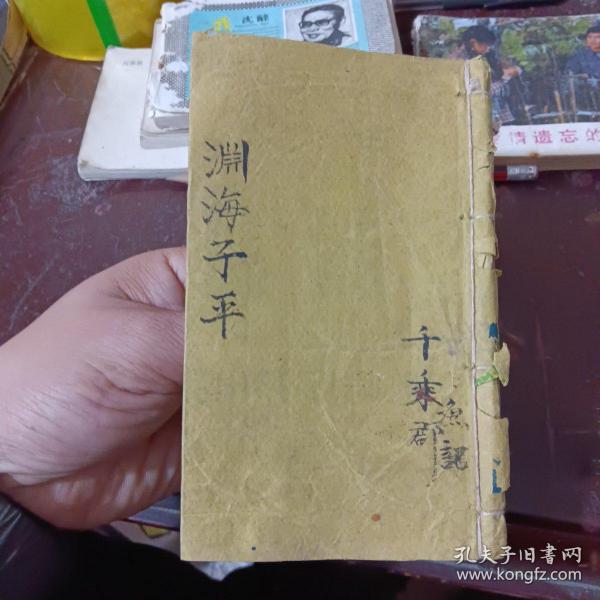 淵海子平
千乘郡
漁記
沈醉
情遗忘的
孔夫子旧书网
www.kongfz.com